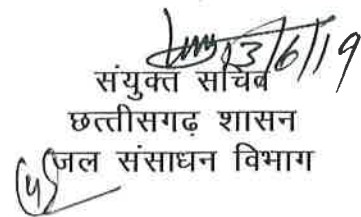 13/6/19
संयुक्त सचिव
छत्तीसगढ़ शासन
जल संसाधन विभाग